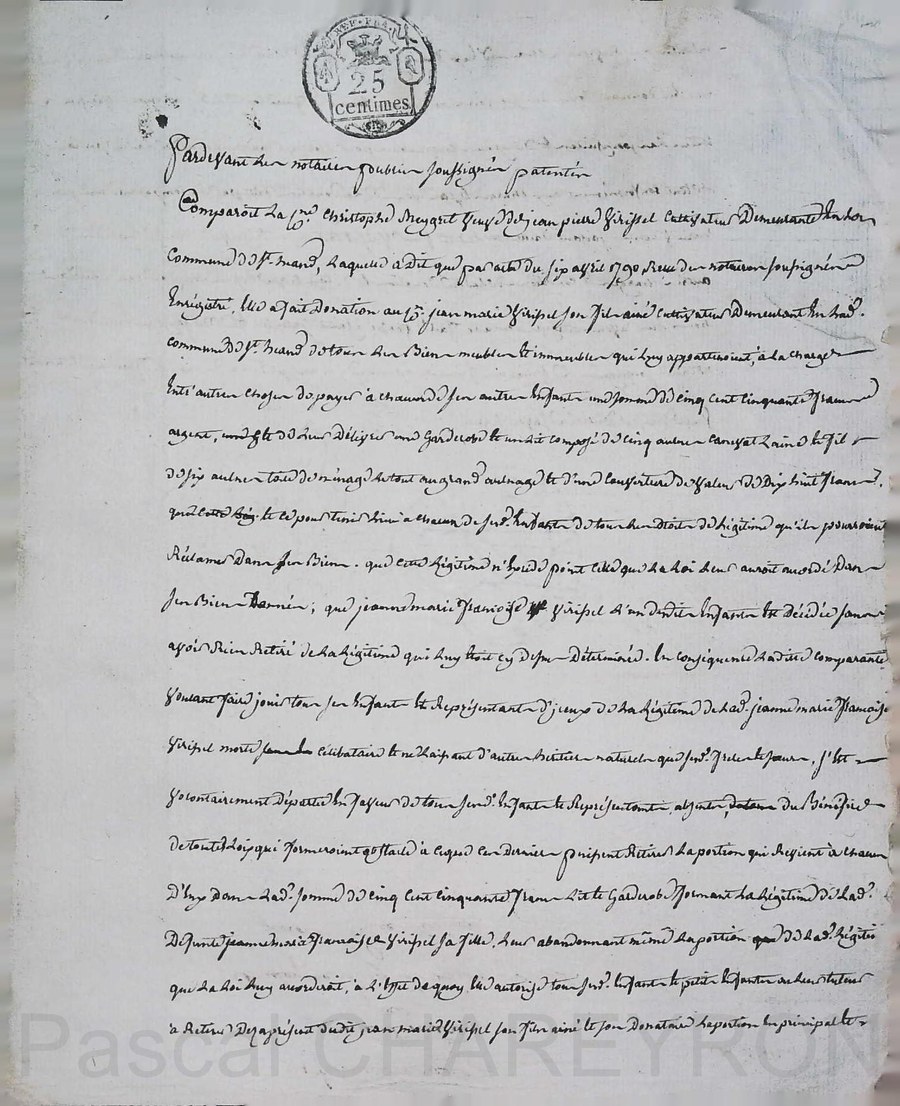 REP. FRA.
25
centimes
Pardevant Les notaires publics soussignés patentés
Comparoit La cne Christophe Meygret veuve de jean pierre Virissel Cultivateur Demeurante En La
Commune de St. mand, Laquelle a dit que par acte du six avril 1790 Reçu des notaires soussignés
Enrégistré, Elle a fait Donation au cn. jean marie Virissel son fils ainé Cultivateur Demeurant En Lad.
commune de St. mand de tous Les Biens meubles Et immeubles qui Luy appartenoient, à la charge
Entr'autres choses de payer à chacun de ses autres Enfants une somme de cinq cent cinquante francs
argent, de Leur Délivrer une Garderobe Et un Lit composé de cinq aulnes Laine Et fil
de six aulnes toile de ménage Le tout au grand aulnage Et d'une Couverture de valeur de Dix huit francs.
Et ce pour tenir Lieu a chacun de sesd. Enfants de tous Les Droits de Légitime qu'ils pourroient
Réclamer Dans ses Biens. que cette Légitime n'Excède point celle que La Loi Leur auroit accordé Dans
ses Biens Donnés; que jeanne marie françoise Virissel L'un desdits Enfants Est Décédée sans
avoir Rien Retiré de La Légitime qui Luy Etoit cy Dessus Déterminée. En conséquence Ladite comparante
voulant faire jouir tous ses Enfants Et Représentants d'iceux de La Légitime de Lad. jeanne marie françoise
Virissel morte célibataire Et ne Laissant d'autres héritiers naturels que sesd. freres Et sœurs, s'Est
volontairement Départie En faveur de tous sesd. Enfants Et Représentants absents, du Bénéfice
de toutes Loix qui formeroint obstacle à ce que Ces Derniers puissent Retirer La portion qui Revient à chacun
D'Eux Dans Lad. somme de cinq Cent cinquante francs Lit Et Garderobe formant La Légitime de Lad.
Defunte jeanne marie françoise Virissel sa fille, Leur abandonnant même La portion de Lad. Légitime
que La Loi Luy accorderoit, à L'Effet de quoy Elle autorise tous sesd. Enfants Et petits Enfants ou Leurs tuteurs
à Retirer Des à présent dudit jean marie Virissel son fils ainé Et son Donataire La portion En principal Et
Pascal CHAREYRON